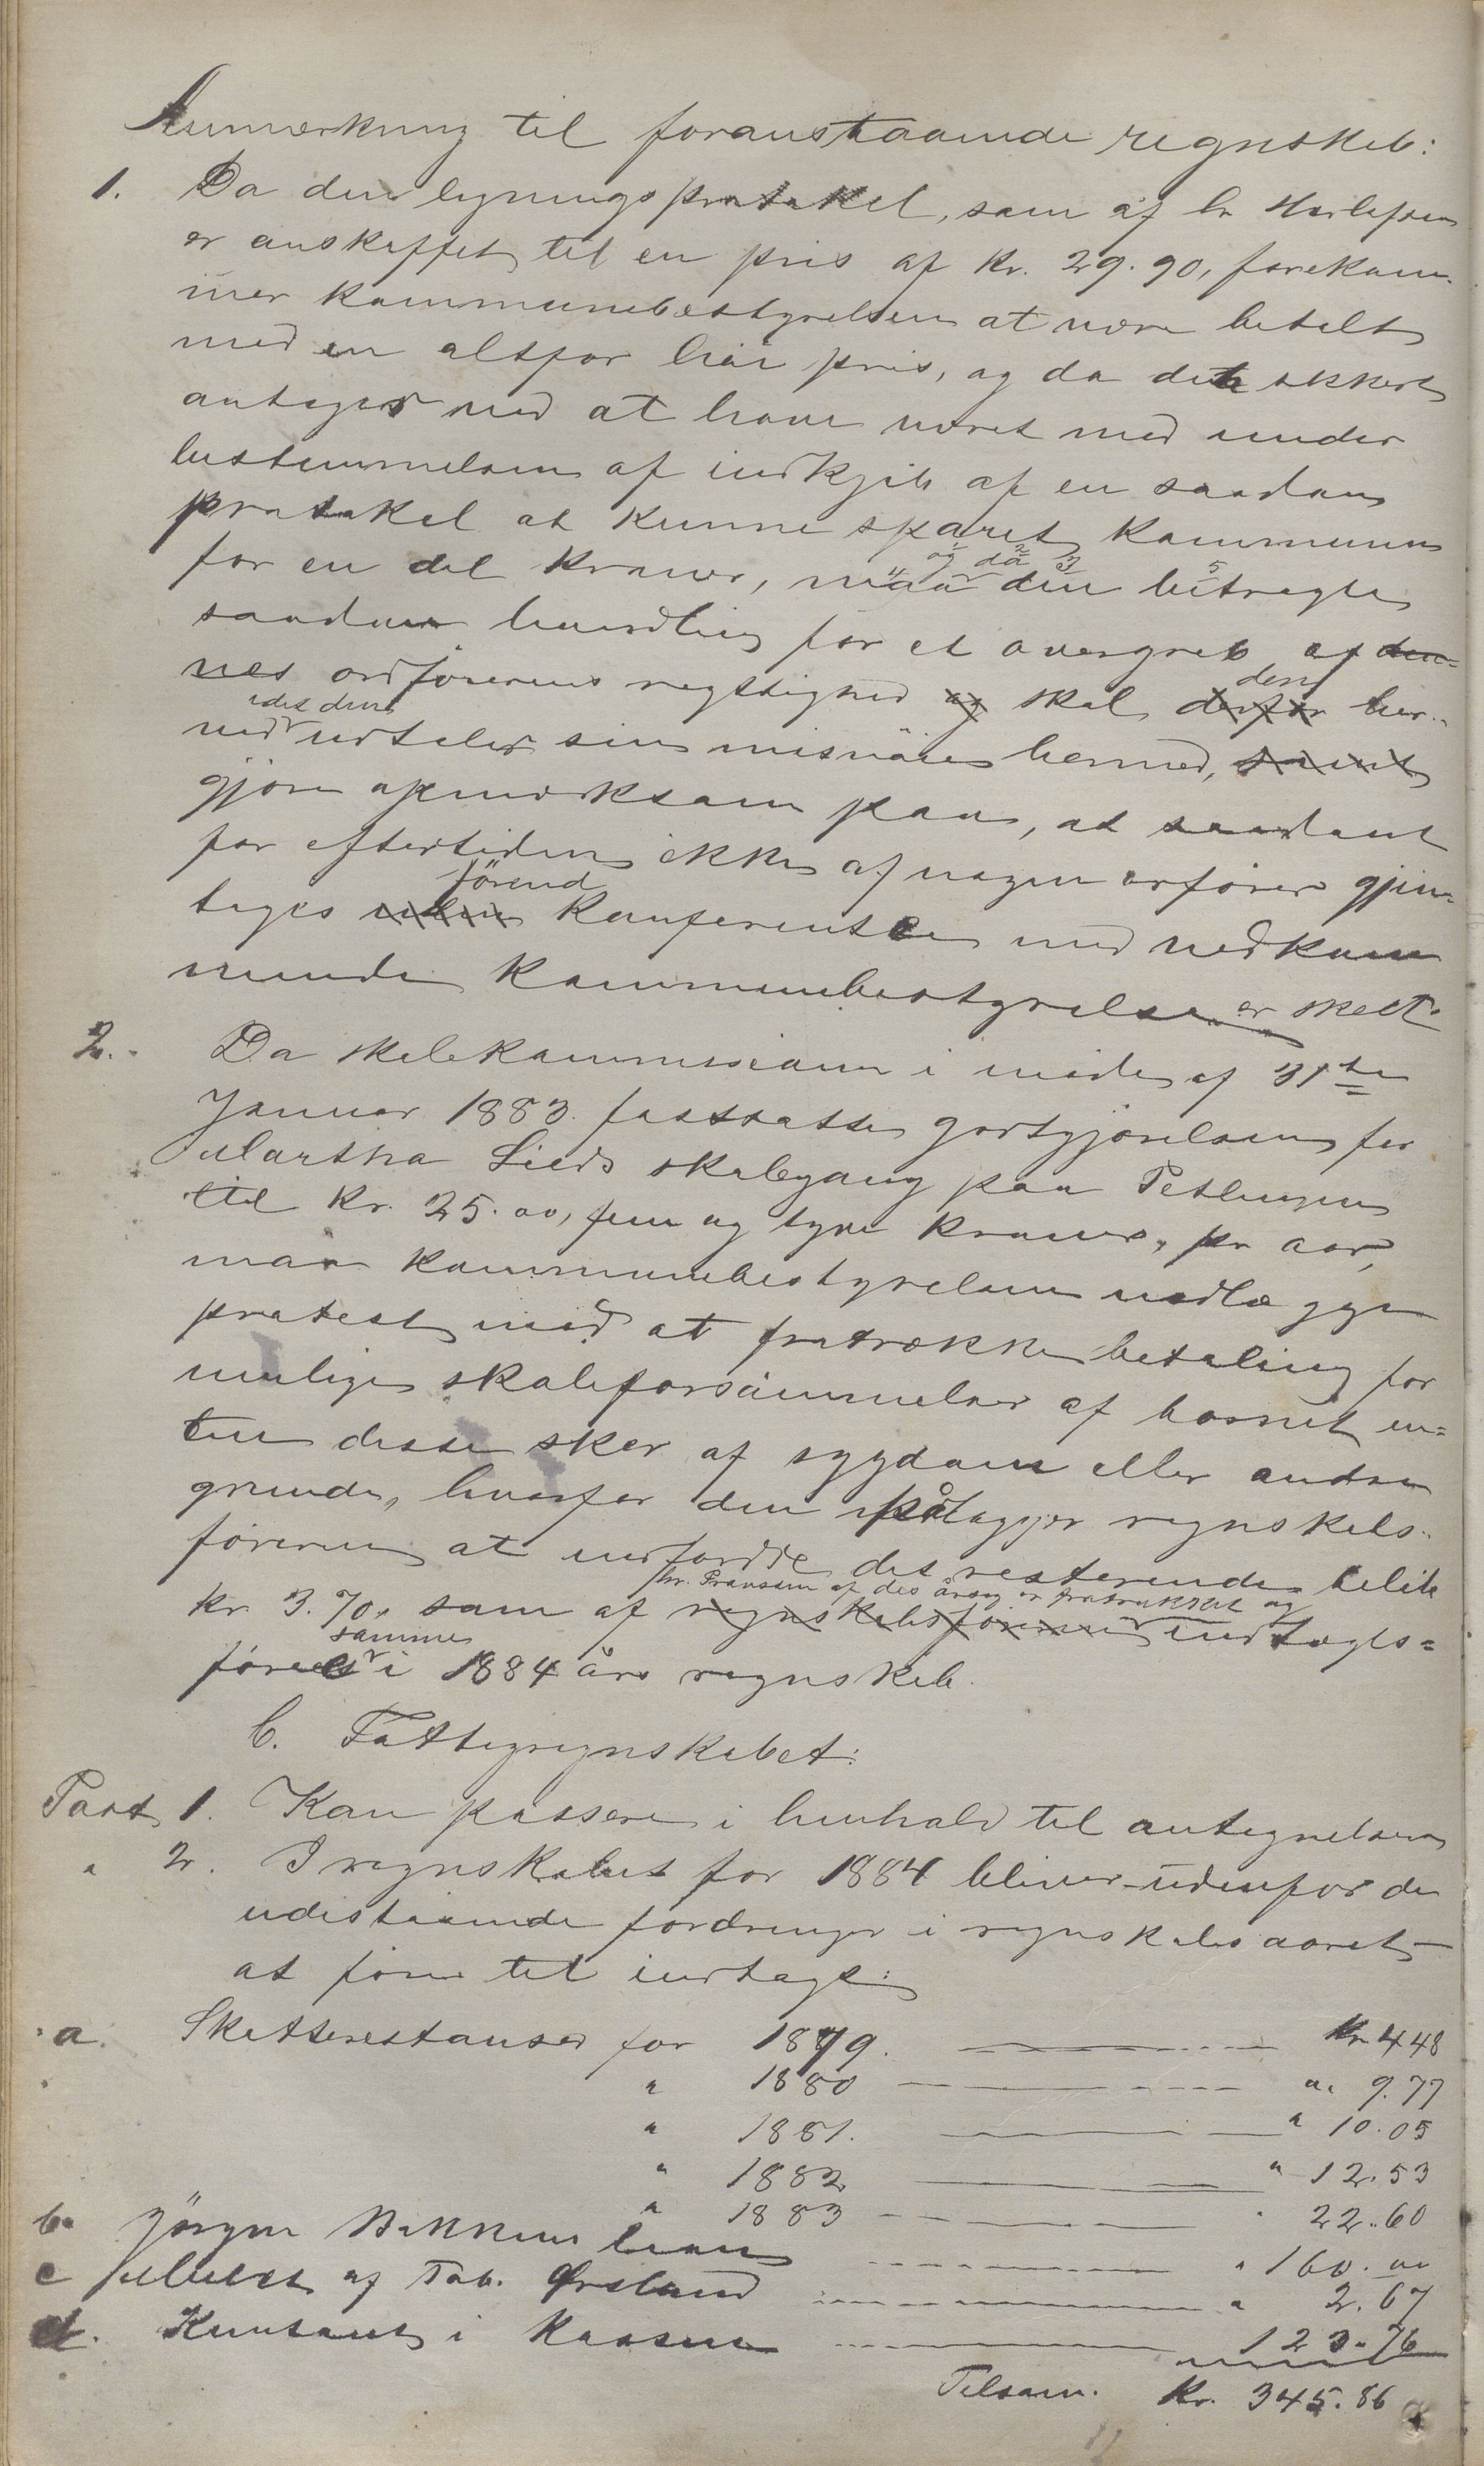 Anmærkning til foranstaaende regnskab:
1. Da den ligningsprotokol, som af hr
er anskaffet til en pris af kr. 29.90, forekom-
mer kommunebestyrelsen at være betalt
med en altfor höi pris, og da den sikkert
antager ved at have været med under
bestemmelsen af indkjöb af en saadan
protokol at kunne sparet kommunen
og da
for en del kroner, maa den betragte
saadan handling for et overgreb af den-
nes ordförerens myndighed og skal derfor her-
den
idet den
ved udtaler sin misnöie hermed, samt
gjöre opmærksom paa, at saadant
for eftertiden ikke af nogen orförer gjen-
förend
tages uden konferentse med vedkom
mende kommunebestyrelse er skeet.
2. Da skolekommissionen i möde af 31te
Januar 1883 fastsatte godtgjörelsen for
Martha Lieds skolegang paa Petlungen
til kr. 25.00, fem og tyve kroner, pr aar,
maa kommunebestyrelsen nedlægge
protest mod at fratrække betaling for
mulige skoleforsömmelser af barnet en-
ten disse sker af sygdom eller andre
grunde, hvorfor den pålægger regnskabs-
föreren at indfordre det resterende belöb
hr. Franssen af des årsag er fratrukket og
kr. 3.70, som af regnskabsföreren indtægts-
samme
föres i 1884 års regnskab.
C. Fattigregnskabet:
Post 1. Kan passere i henhold til antegnelsen
" 2. I regnskabet for 1884 bliver udenfor de
udestaaende fordringer i regnskabsaaret
at före til indtægt:
a. Skatterestanser for 1879. Kr 4 48
" 1880 " 9.77
" 1881. " 10.05
" 1882 " 12.53
" 1883 " 22.60
b. Jörgen Bakkens laan " 160.00
c Mulkt af Tob. Ørsland " 2.67
d. Kontant i kassen 123.76
Tilsam. Kr. 345.86